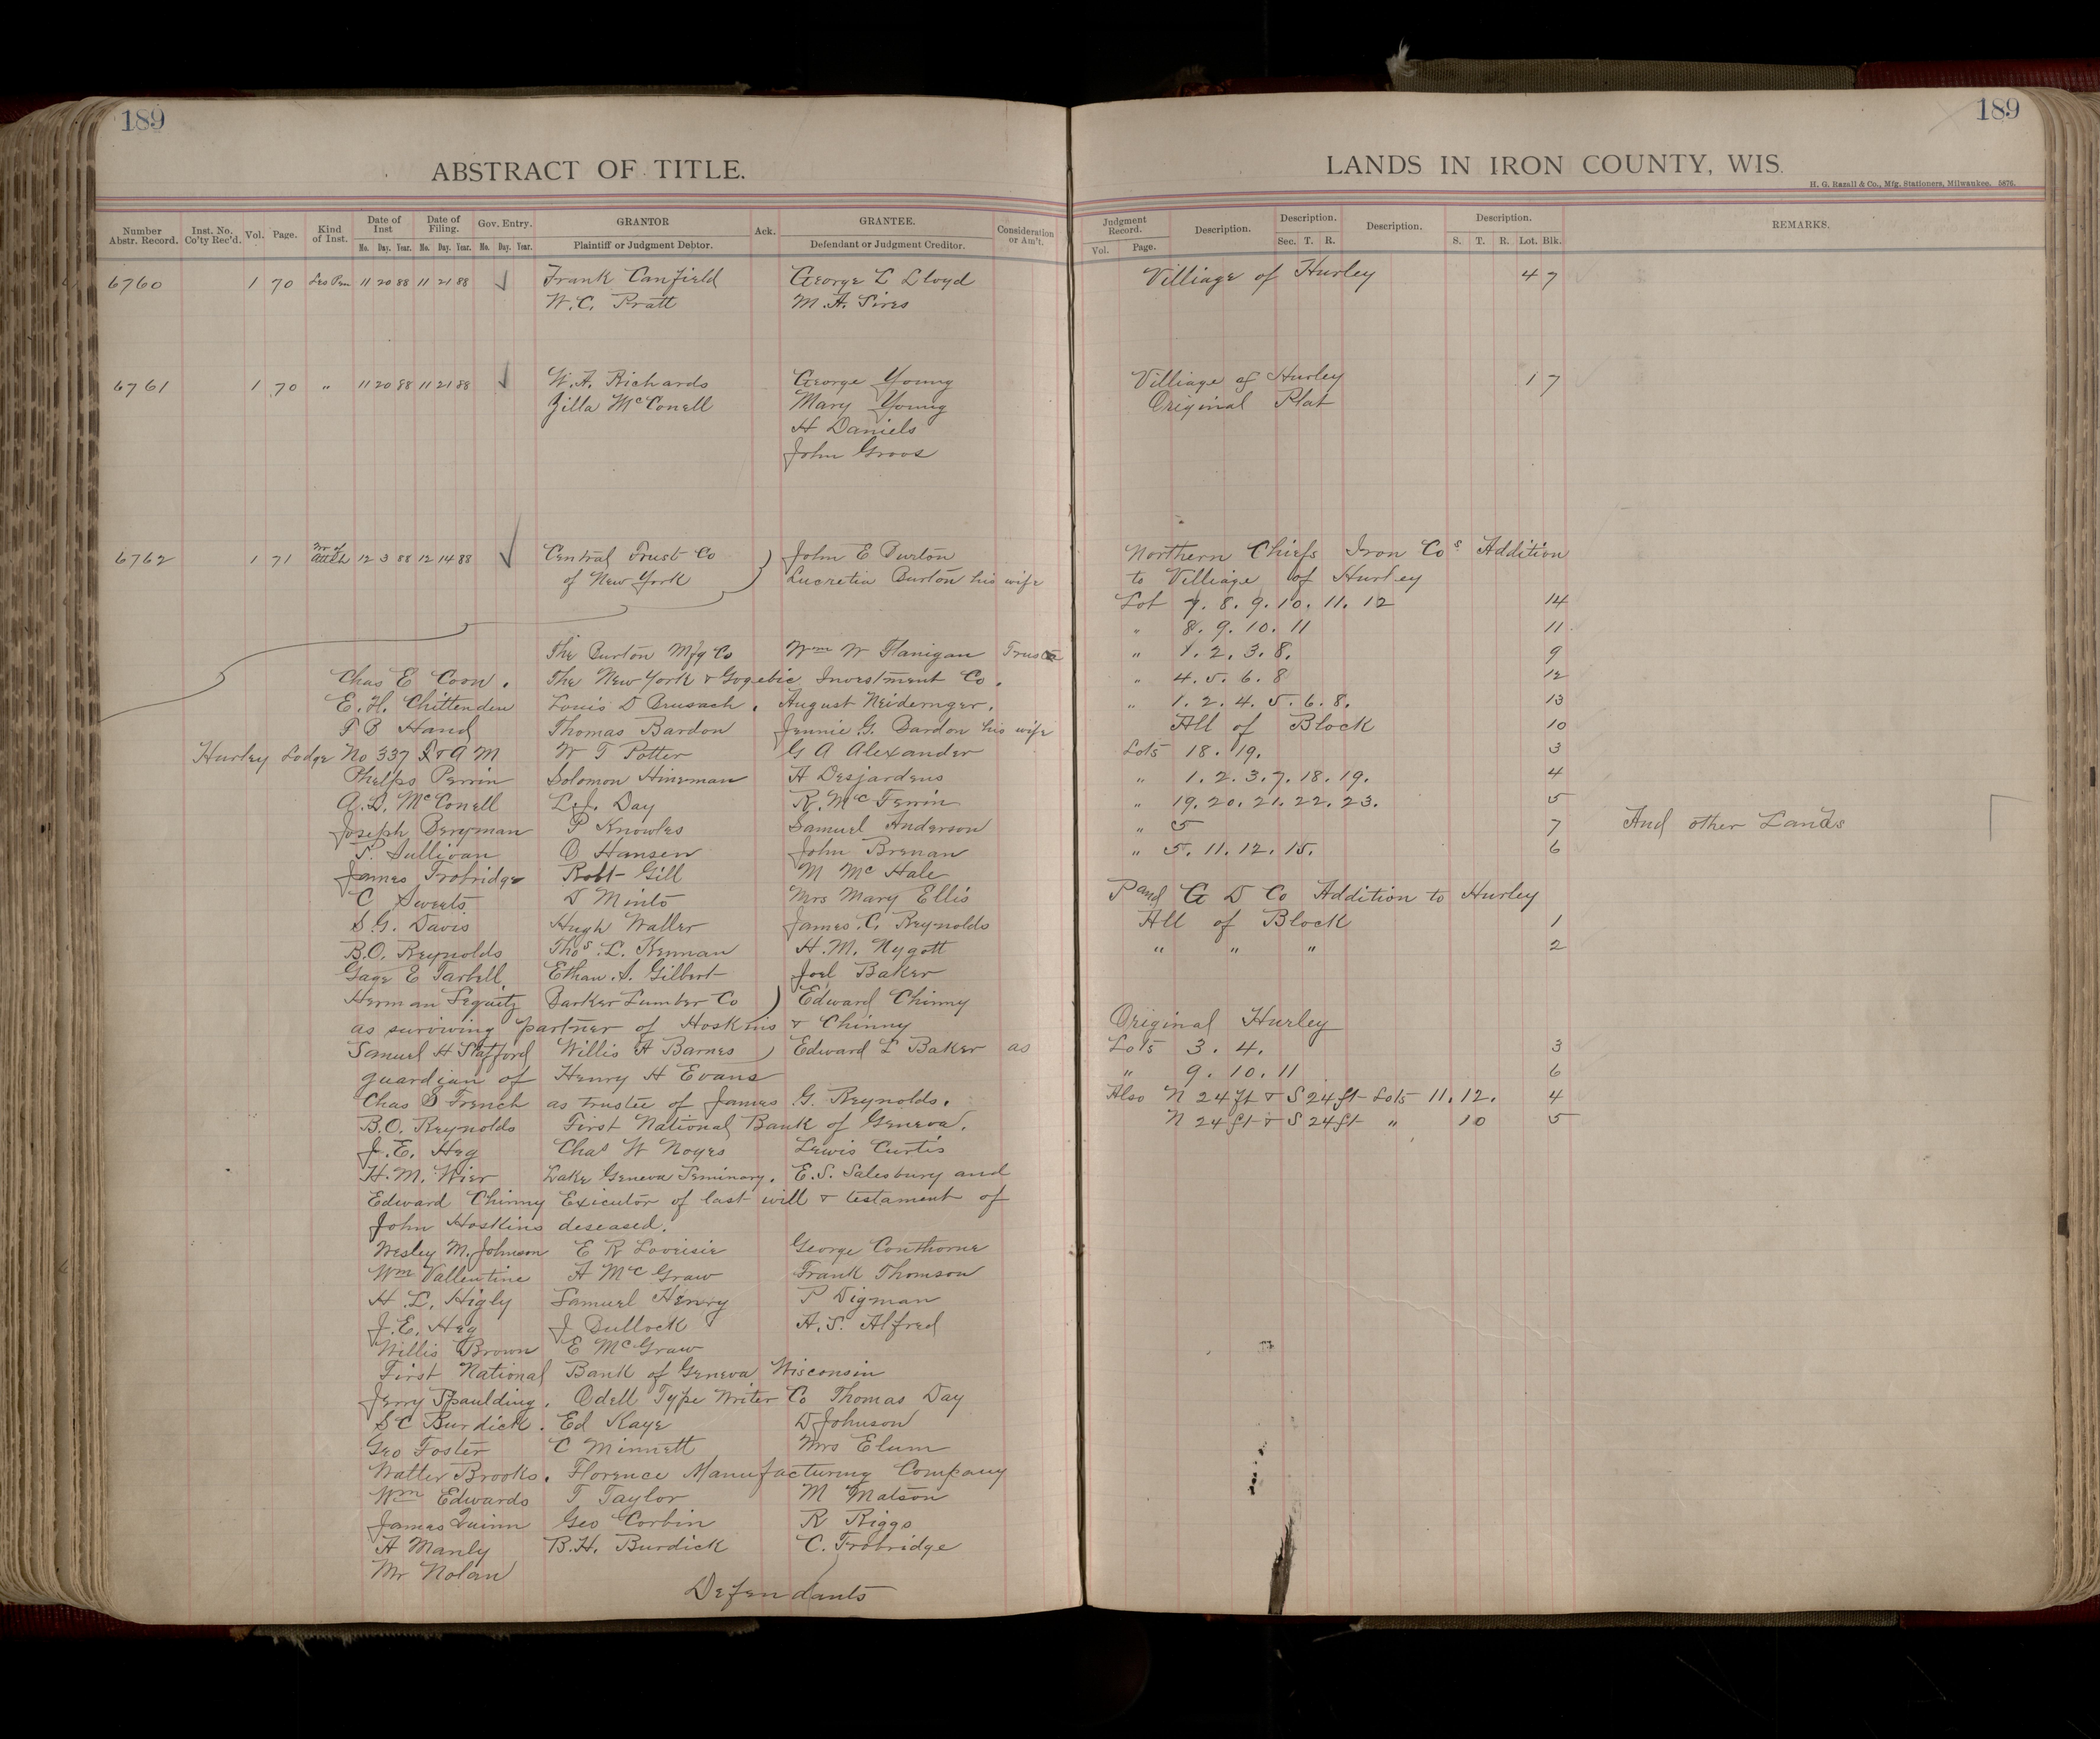 189
ABSTRACT OF TITLE.
Number Abstr. Record. Inst. No. Co'ty Rec'd. Vol. Page. Kind of Inst. Date of Inst Mo. Day. Year. Date of Filing. Mo. Day. Year. Gov. Entry. Mo. Day. Year. GRANTOR Plaintiff or Judgment Debtor. Ack. GRANTEE. Defendant or Judgment Creditor. Consideration or Am't.
6760 1 70 Les Pen 11 20 88 11 21 88 Frank Canfield George L Lloyd
W. C. Pratt M. A. Sires
6761 1 70 " 11 20 88 11 21 88 W. A. Richards George Young
Zilla McConell Mary Young
H Daniels
John Groos
6762 1 71 Wr of Attch 12 3 88 12 14 88 Central Trust Co John E Burton
of New York Lucretia Burton his wife
The Burton Mfg Co Wm W Flanigan Trustee
Chas E Coon. The New York & Gogebic Investment Co.
E. H. Chittenden Louis D Brusach. August Neidernger.
F B Hand Thomas Bardon Jennie G. Bardon his wife
Hurley Lodge No 337 F & A M W T Potter G A Alexander
Phelps Perrin Solomon Hineman H Desjardens
A. D. McConell L. J. Day R. Mc Ferrin
Joseph Beryman P Knowles Samuel Anderson
P. Sullivan O Hansen John Brenan
James Trobridge Robt Gill M Mc Hale
C Sweets D Minto Mrs Mary Ellis
S. G. Davis Hugh Waller James. C. Reynolds
B. O. Reynolds Thos. L. Kennan H. M. Nygott
Gage E Tarbell Ethan. S. Gilbert Joel Baker
Herman Seguitz Barker Lumber Co Edward Chinny
as surviving partner of Hoskins & Chinny
Samuel H Stafford Willis A Barnes Edward L Baker as
guardian of Henry H Evans
Chas S French as trustee of James G. Reynolds.
B. O. Reynolds First National Bank of Geneva.
J. E. Heg Chas W Noyes Lewis Curtis
H. M. Wier Lake Geneva Seminary. E. S. Salesbury and
Edward Chinny Executor of last will & testament of
John Hoskins deseased.
Wesley M. Johnson E R Loveisie George Conthorne
Wm Vallentine A McGraw Frank Thomson
H. L. Higly Samuel Henry P Digman
J. E. Heg J Bullock A. S. Alfred
Willis Brown E McGraw
First National Bank of Geneva Wisconsin
Jerry Spaulding. Odell Type Writer Co Thomas Day
S C Burdick. Ed Kaye D Johnson
Geo Foster C Minnett Mrs Elum
Walter Brooks. Florence Manufacturing Company
Wm Edwards T Taylor M Matson
James Quinn Geo Corbin R Riggs
A Manly B. H. Burdick C. Trobridge
Mr Nolan
Defendants
189
LANDS IN IRON COUNTY, WIS.
H. G. Razall & Co., Mfg. Stationers, Milwaukee. 5876.
Judgment Record. Vol. Page. Description. Description. Sec. T. R. Description. Description. S. T. R. Lot. Blk. REMARKS.
Villiage of Hurley 4 7
Villiage of Hurley 1 7
Original Plat
Northern Chiefs Iron Cos Addition
to Villiage of Hurley
Lot 7. 8. 9. 10. 11. 12 14
" 8. 9. 10. 11 11
" 1. 2. 3. 8. 9
" 4. 5. 6. 8 12
" 1. 2. 4. 5. 6. 8. 13
All of Block 10
Lots 18. 19. 3
" 1. 2. 3. 7. 18. 19. 4
" 19. 20. 21. 22. 23. 5
" 5 7 And other Lands
" 5. 11. 12. 15. 6
P and G D Co Addition to Hurley
All of Block 1
" " " 2
Original Hurley
Lots 3. 4. 3
" 9. 10. 11 6
Also N 24 ft & S 24 ft Lots 11. 12. 4
N 24 ft & S 24 ft " 10 5